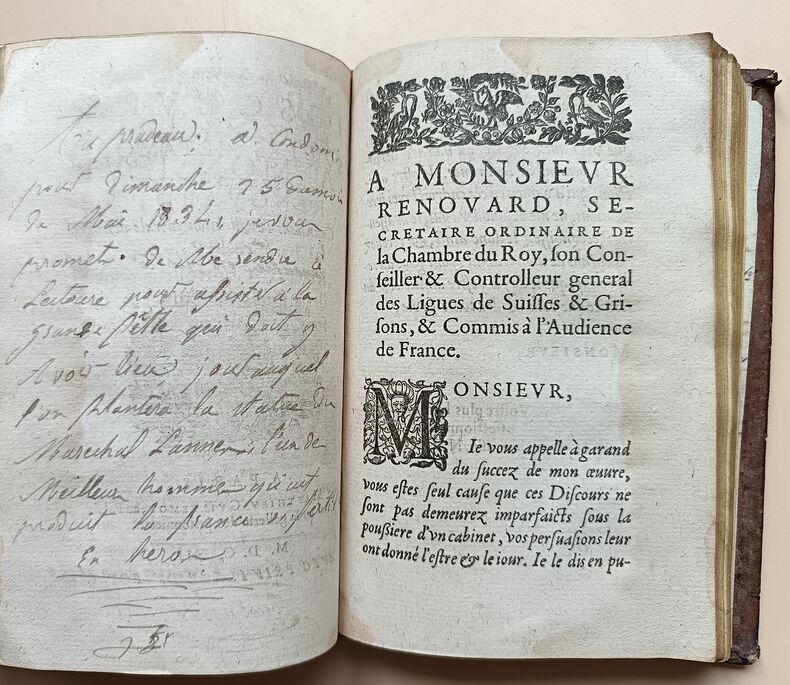 pradeau. a Condom
pour Dimanche 25
de Mai 1834, je vous
promet. de Me rendre à
Lectoure pour assisté a la
grande fette qui doit y
Avoir lieu, jour auquel
l'on plantera la statue du
Marechal Lannes, l'un de
Meilleur homme qu'ait
produit la france
En heros
A MONSIEVR
RENOVARD, SE-
CRETAIRE ORDINAIRE DE
la Chambre du Roy, ſon Con-
ſeiller & Controlleur general
des Ligues de Suiſſes & Gri-
ſons, & Commis à l'Audience
de France.
MONSIEVR,
Ie vous appelle à garand
du ſuccez de mon œuure,
vous eſtes ſeul cauſe que ces Diſcours ne
ſont pas demeurez imparfaicts ſous la
pouſſiere d'vn cabinet, vos perſuaſions leur
ont donné l'eſtre & le iour. Ie le dis en pu-